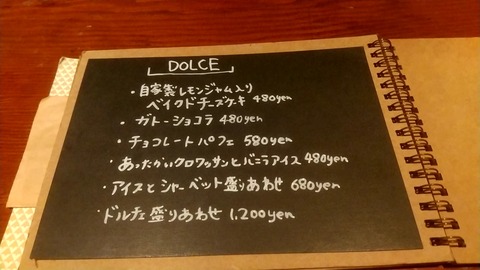 DOLCE
・自家製レモンジャム入り
ベイクドチーズケーキ 480yen
・ガトーショコラ 480yen
・チョコレートパフェ 580yen
・あったかいクロワッサンとバニラアイス 480yen
・アイスとシャーベット盛りあわせ 680yen
・ドルチェ盛りあわせ 1,200yen